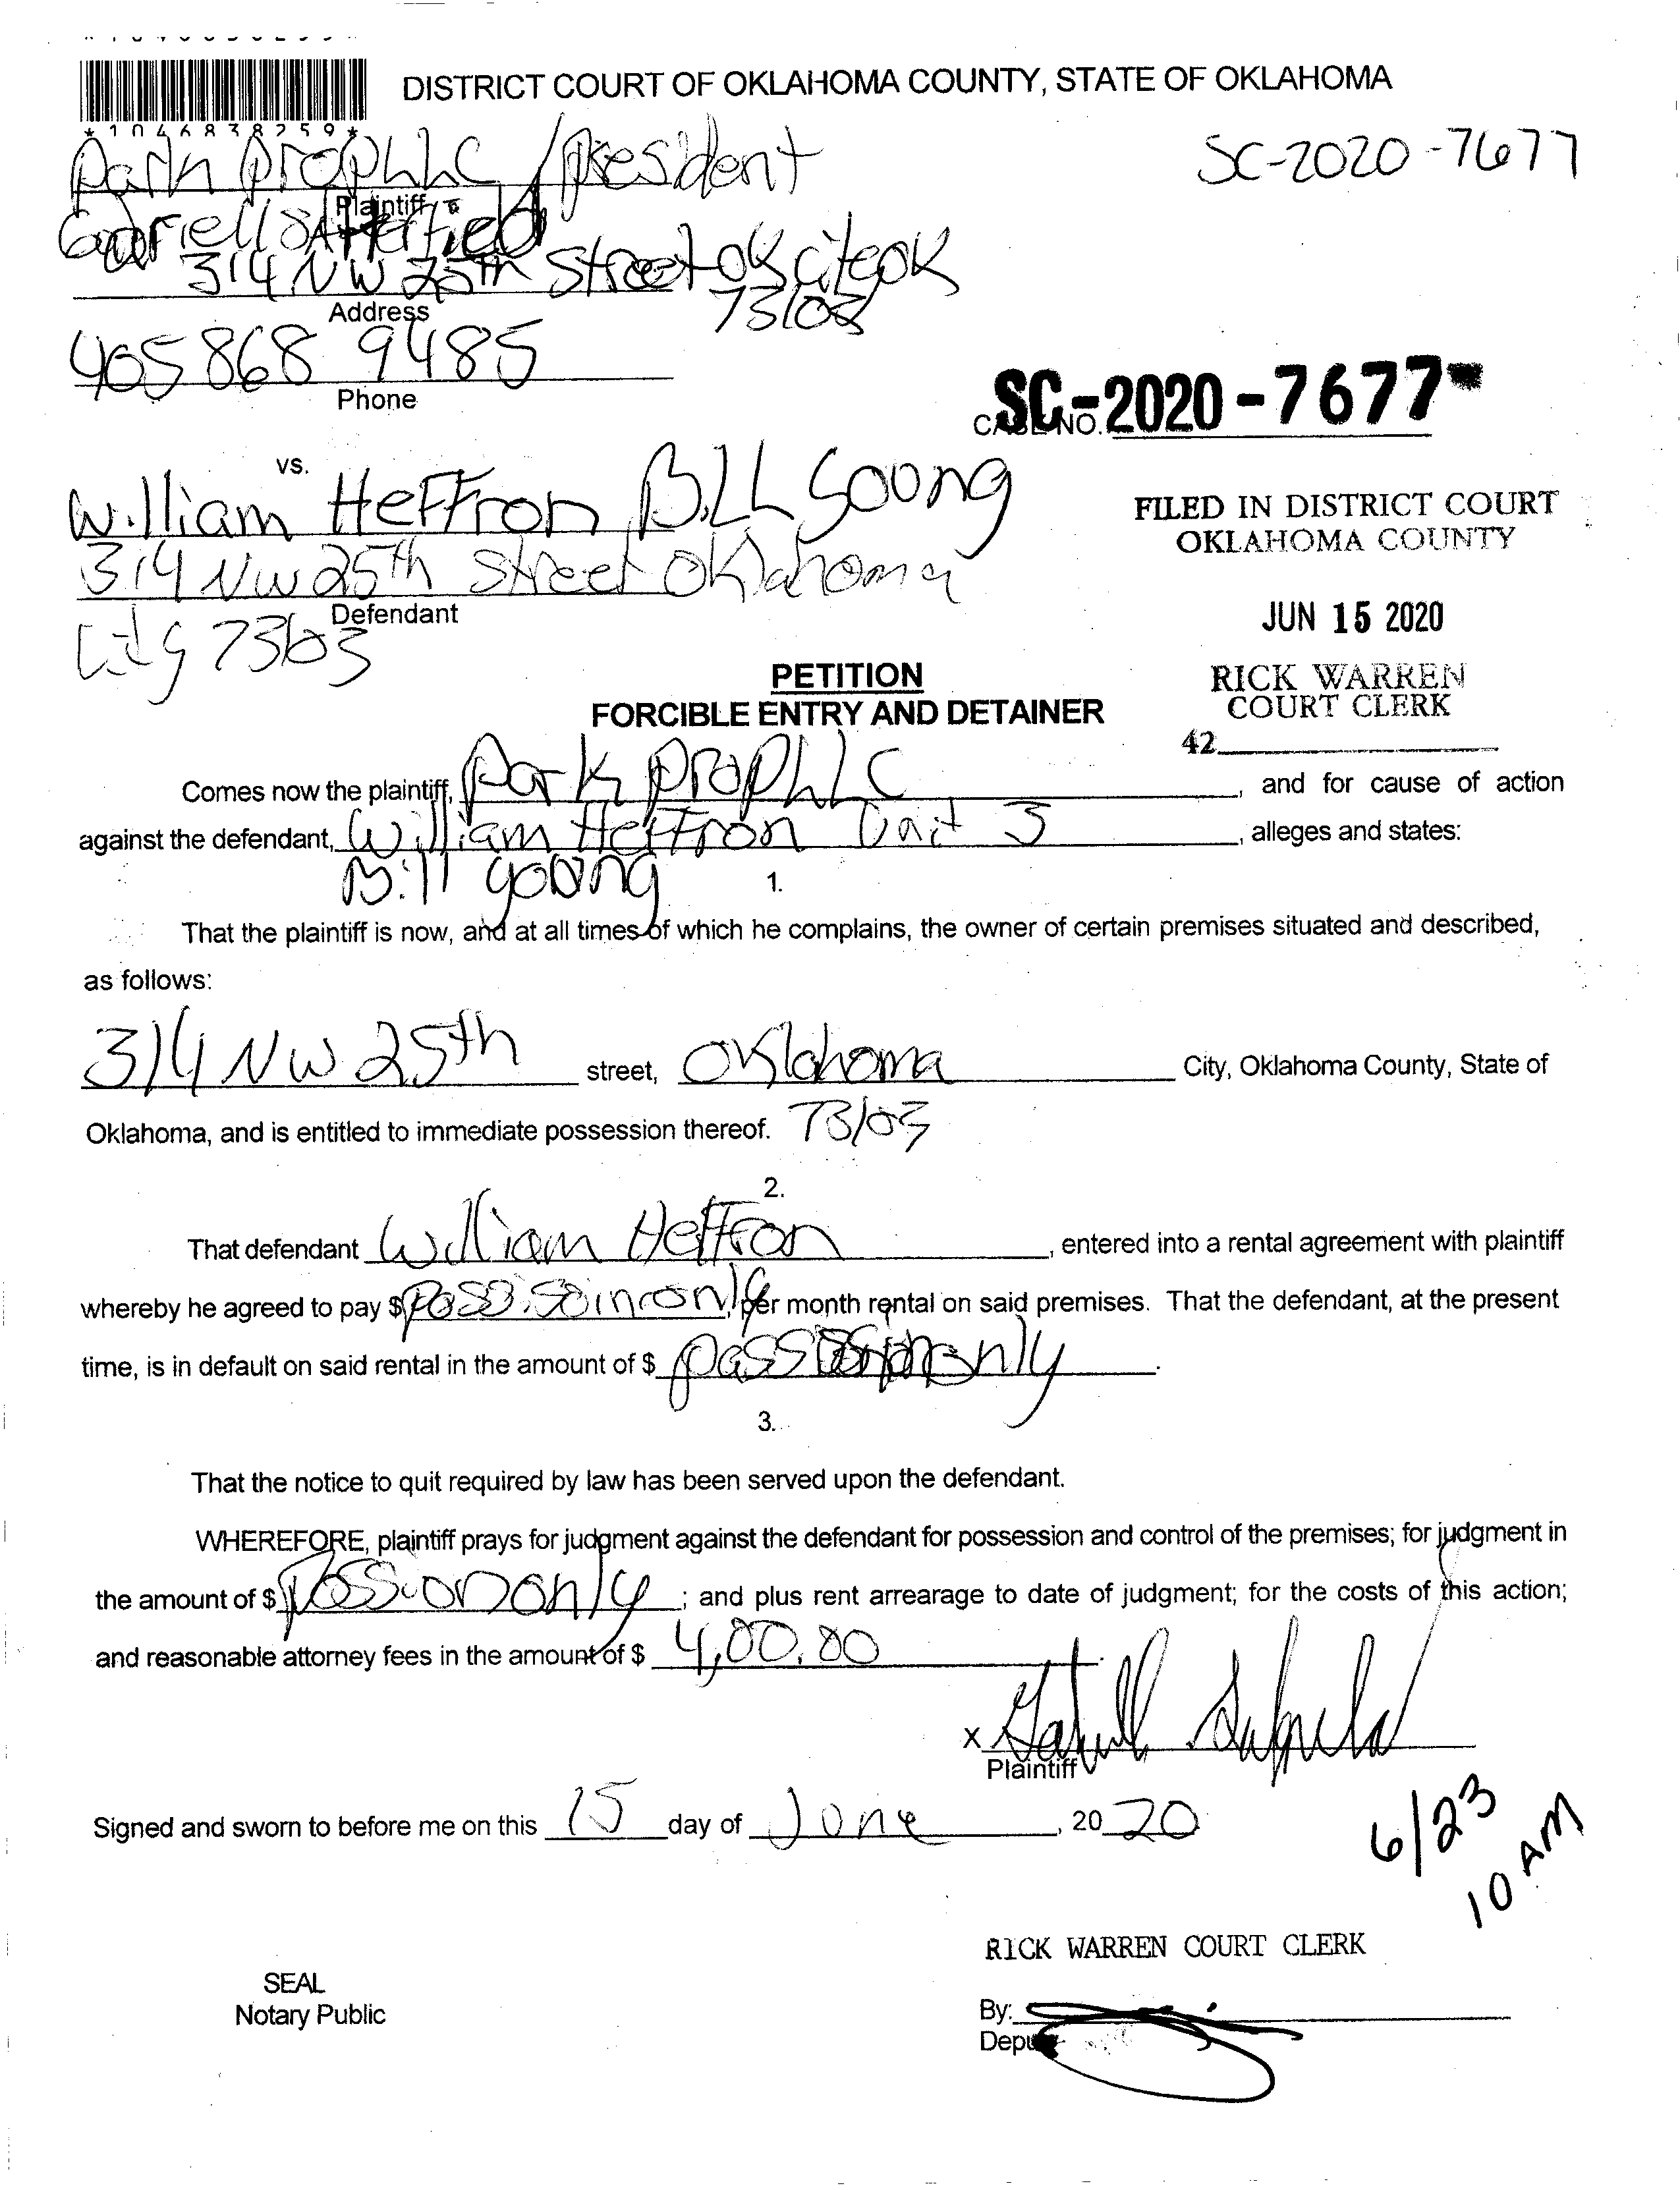 DISTRICT COURT OF OKLAHOMA COUNTY, STATE OF OKLAHOMA
*1046838259*
Park Prop LLC / president
SC-2020-7677
Plaintiff
314 NW 25th Street ok cite ok
73103
Address
405 868 9485
Phone
CASE NO. SC-2020-7677
vs.
William Heffron Bill Goong
314 NW 25th Street Oklahoma
Defendant
City 73103
FILED IN DISTRICT COURT
OKLAHOMA COUNTY
JUN 15 2020
RICK WARREN
COURT CLERK
42
PETITION
FORCIBLE ENTRY AND DETAINER
Comes now the plaintiff, Park Prop LLC, and for cause of action
against the defendant, William Heffron Unit 3, alleges and states:
Bill yoong
1.
That the plaintiff is now, and at all times of which he complains, the owner of certain premises situated and described,
as follows:
314 NW 25th street, Oklahoma City, Oklahoma County, State of
Oklahoma, and is entitled to immediate possession thereof. 73103
2.
That defendant William Heffron, entered into a rental agreement with plaintiff
whereby he agreed to pay $ per month rental on said premises. That the defendant, at the present
time, is in default on said rental in the amount of $ only.
3.
That the notice to quit required by law has been served upon the defendant.
WHEREFORE, plaintiff prays for judgment against the defendant for possession and control of the premises; for judgment in
the amount of $ possion only; and plus rent arrearage to date of judgment; for the costs of this action;
and reasonable attorney fees in the amount of $ 4,00.00
X
Plaintiff
Signed and sworn to before me on this 15 day of June, 2020
6/23
10 AM
RICK WARREN COURT CLERK
SEAL
Notary Public
By:
Deputy